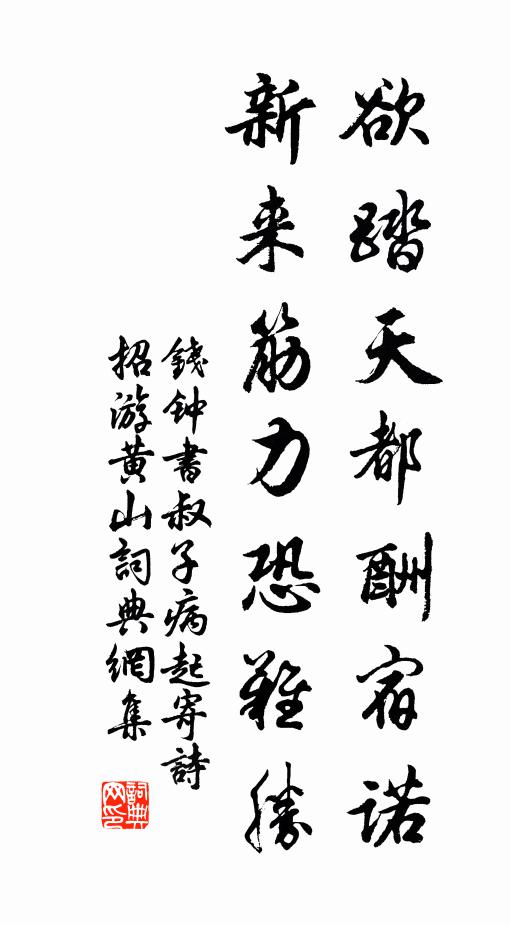 欲踏天都酬宿诺
新来筋力恐難勝
錢钟書叔子病起寄詩
招游黄山詞典網集
詞典
网印